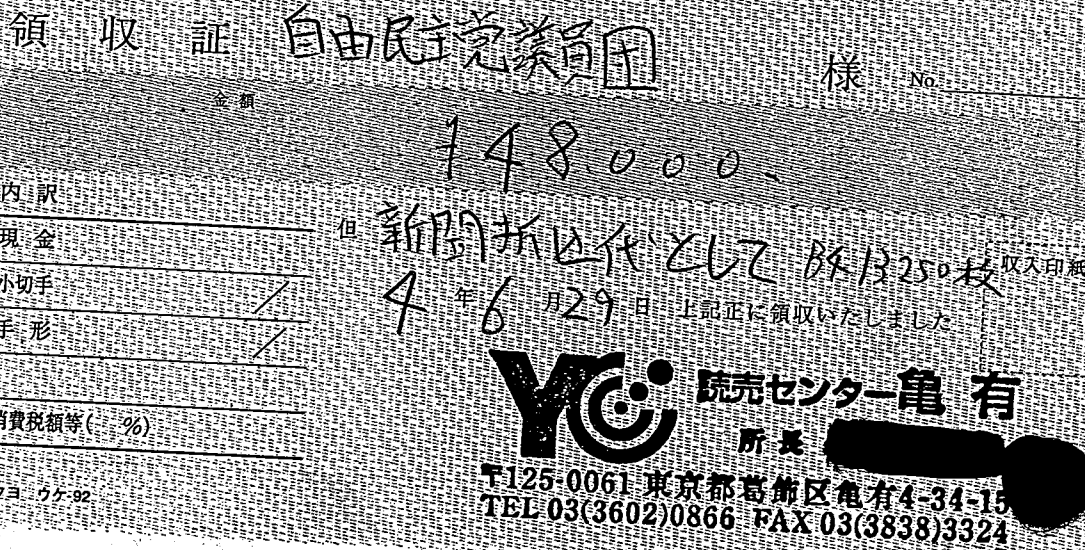 領収証 自由民主党議員団 様 No.
金額
¥48,000、
内訳
現金
小切手
手形
消費税額等( %)
但 新聞折込代として B4 13250枚
収入印紙
4年6月29日 上記正に領収いたしました
YC 読売センター亀有
所長
〒125-0061 東京都葛飾区亀有4-34-15
TEL 03(3602)0866 FAX 03(3838)3324
ウケ-92